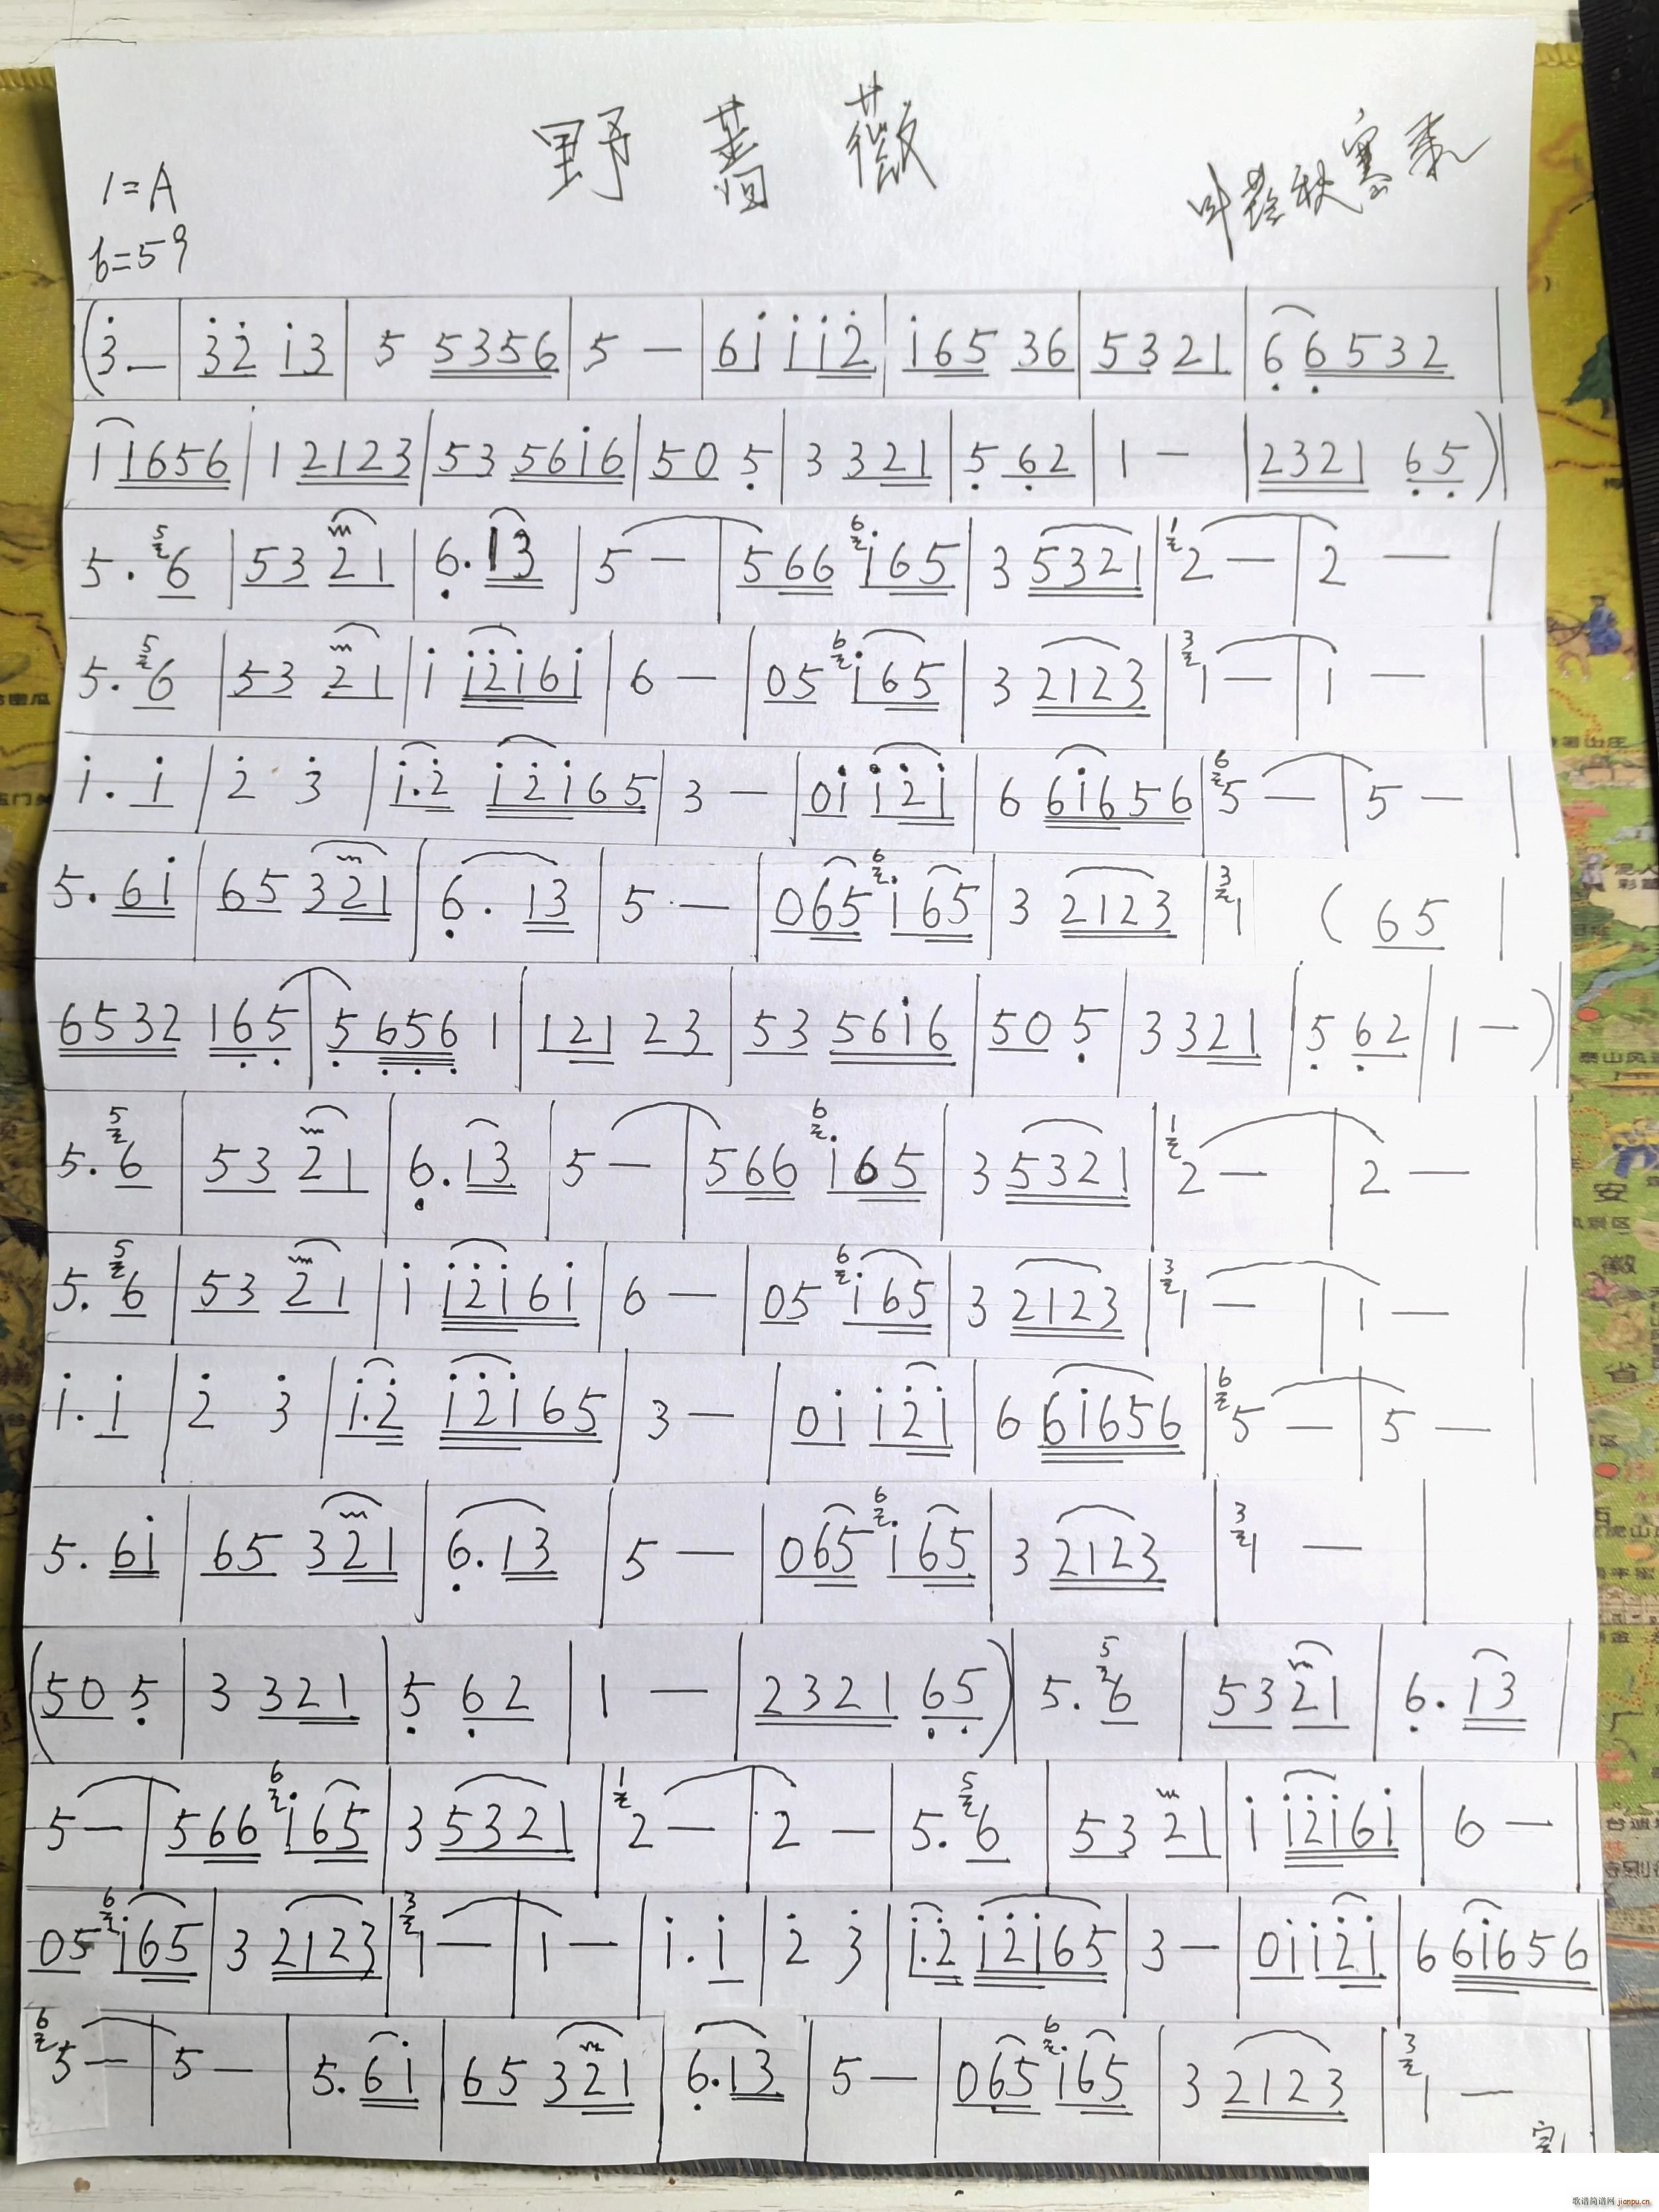 野蔷薇
1=A
6=59
(3̇. — | 3̇2̇ i3 | 5 5356 | 5 — | 6i ii2̇ | i65 36 | 5321 | 6̣ 6̣532 |
1 1656 | 1 2123 | 53 56i6 | 50 5̣ | 3 321 | 5̣ 6̣2 | 1 — | 2321 6̣5̣ ) |
5. 5 6 | 53 21 | 6̣. 13 | 5 — | 566 6 i65 | 3 5321 | 1 2 — | 2 — |
5. 5 6 | 53 21 | i i2̇i6i | 6 — | 05 6 i65 | 3 2123 | 3 1 — | 1 — |
i. i | 2̇ 3̇ | i.2̇ i2̇i65 | 3 — | 0i i2̇i | 6 6i656 | 6 5 — | 5 — |
5. 6i | 65 321 | 6̣. 13 | 5 — | 065 6 i65 | 3 2123 | 3 1 ( 65 |
6532 16̣5̣ | 5̣ 6̣5̣6̣ 1 | 121 23 | 53 56i6 | 50 5̣ | 3 321 | 5̣ 6̣2 | 1 — ) |
5. 5 6 | 53 21 | 6̣. 13 | 5 — | 566 6 i65 | 3 5321 | 1 2 — | 2 — |
5. 5 6 | 53 21 | i i2̇i6i | 6 — | 05 6 i65 | 3 2123 | 3 1 — | 1 — |
i. i | 2̇ 3̇ | i.2̇ i2̇i65 | 3 — | 0i i2̇i | 6 6i656 | 6 5 — | 5 — |
5. 6i | 65 321 | 6̣. 13 | 5 — | 065 6 i65 | 3 2123 | 3 1 — |
(50 5̣ | 3 321 | 5̣ 6̣2 | 1 — | 2321 6̣5̣ ) | 5. 5 6 | 53 21 | 6̣. 13 |
5 — | 566 6 i65 | 3 5321 | 1 2 — | 2 — | 5. 5 6 | 53 21 | i i2̇i6i | 6 — |
05 6 i65 | 3 2123 | 3 1 — | 1 — | i. i | 2̇ 3̇ | i.2̇ i2̇i65 | 3 — | 0i i2̇i | 6 6i656 |
6 5 — | 5 — | 5. 6i | 65 321 | 6̣. 13 | 5 — | 065 6 i65 | 3 2123 | 3 1 — |
歌谱简谱网 jianpu.cn